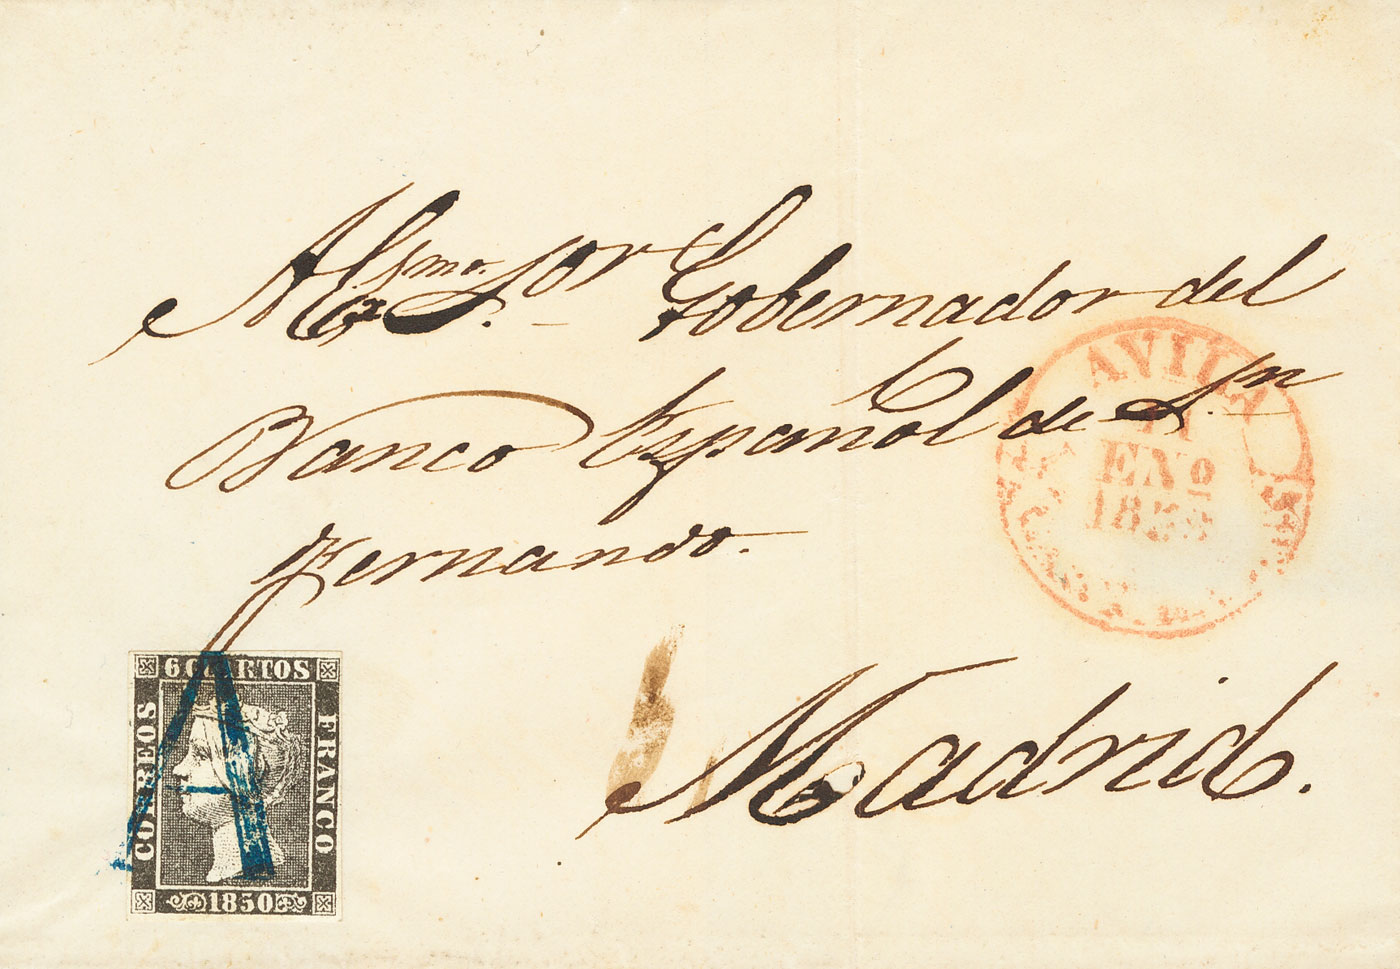 Al Ysmo. Sor Gobernador del
Banco Español de Sn
Fernando.
Madrid.
AVILA
ENº
6 CUARTOS
CORREOS
FRANCO
1850
A